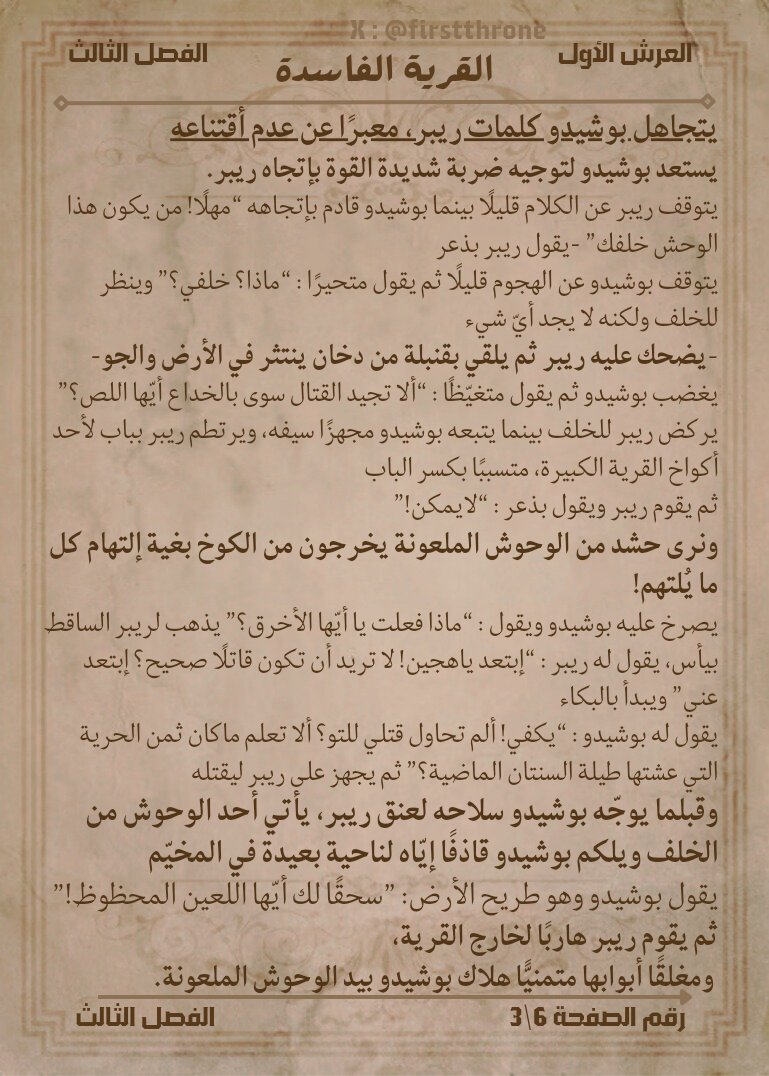 X : @firstthrone
العرش الأول
الفصل الثالث
القرية الفاسدة
يتجاهل بوشيدو كلمات ريبر، معبرًا عن عدم أقتناعه
يستعد بوشيدو لتوجيه ضربة شديدة القوة بإتجاه ريبر.
يتوقف ريبر عن الكلام قليلًا بينما بوشيدو قادم بإتجاهه “مهلًا! من يكون هذا
الوحش خلفك” -يقول ريبر بذعر
يتوقف بوشيدو عن الهجوم قليلًا ثم يقول متحيرًا : “ماذا؟ خلفي؟” وينظر
للخلف ولكنه لا يجد أيّ شيء
-يضحك عليه ريبر ثم يلقي بقنبلة من دخان ينتثر في الأرض والجو-
يغضب بوشيدو ثم يقول متغيّظًا : “ألا تجيد القتال سوى بالخداع أيّها اللص؟”
يركض ريبر للخلف بينما يتبعه بوشيدو مجهزًا سيفه، ويرتطم ريبر بباب لأحد
أكواخ القرية الكبيرة، متسببًا بكسر الباب
ثم يقوم ريبر ويقول بذعر : “لايمكن!”
ونرى حشد من الوحوش الملعونة يخرجون من الكوخ بغية إلتهام كل
ما يُلتهم!
يصرخ عليه بوشيدو ويقول : “ماذا فعلت يا أيّها الأخرق؟” يذهب لريبر الساقط
بيأس، يقول له ريبر : “إبتعد ياهجين! لا تريد أن تكون قاتلًا صحيح؟ إبتعد
عني” ويبدأ بالبكاء
يقول له بوشيدو : “يكفي! ألم تحاول قتلي للتو؟ ألا تعلم ماكان ثمن الحرية
التي عشتها طيلة السنتان الماضية؟” ثم يجهز على ريبر ليقتله
وقبلما يوجّه بوشيدو سلاحه لعنق ريبر، يأتي أحد الوحوش من
الخلف ويلكم بوشيدو قاذفًا إيّاه لناحية بعيدة في المخيّم
يقول بوشيدو وهو طريح الأرض: ”سحقًا لك أيّها اللعين المحظوظ!”
ثم يقوم ريبر هاربًا لخارج القرية،
ومغلقًا أبوابها متمنيًّا هلاك بوشيدو بيد الوحوش الملعونة.
رقم الصفحة 6\3
الفصل الثالث